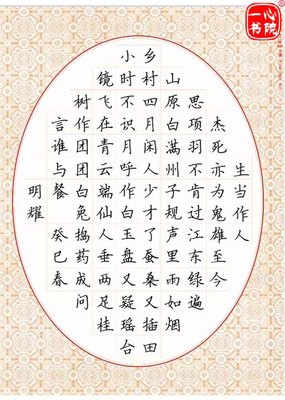 一心
书院
生当作人
杰死亦为鬼雄至今
思项羽不肯过江东绿遍
山原白满州子规声里雨如烟
乡村四月闲人少才了蚕桑又插田
小时不识月呼作白玉盘又疑瑶台
镜飞在青云端仙人垂两足桂
树作团团白兔捣药成问
言谁与餐
癸巳春
明耀